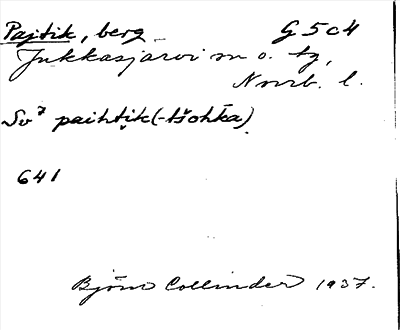 Pajtik, berg G 5 c 4
Jukkasjärvi sn o. tg,
Norrb. l.
Sv⁷ paihtik(-tšohka).
641
Björn Collinder 1937.